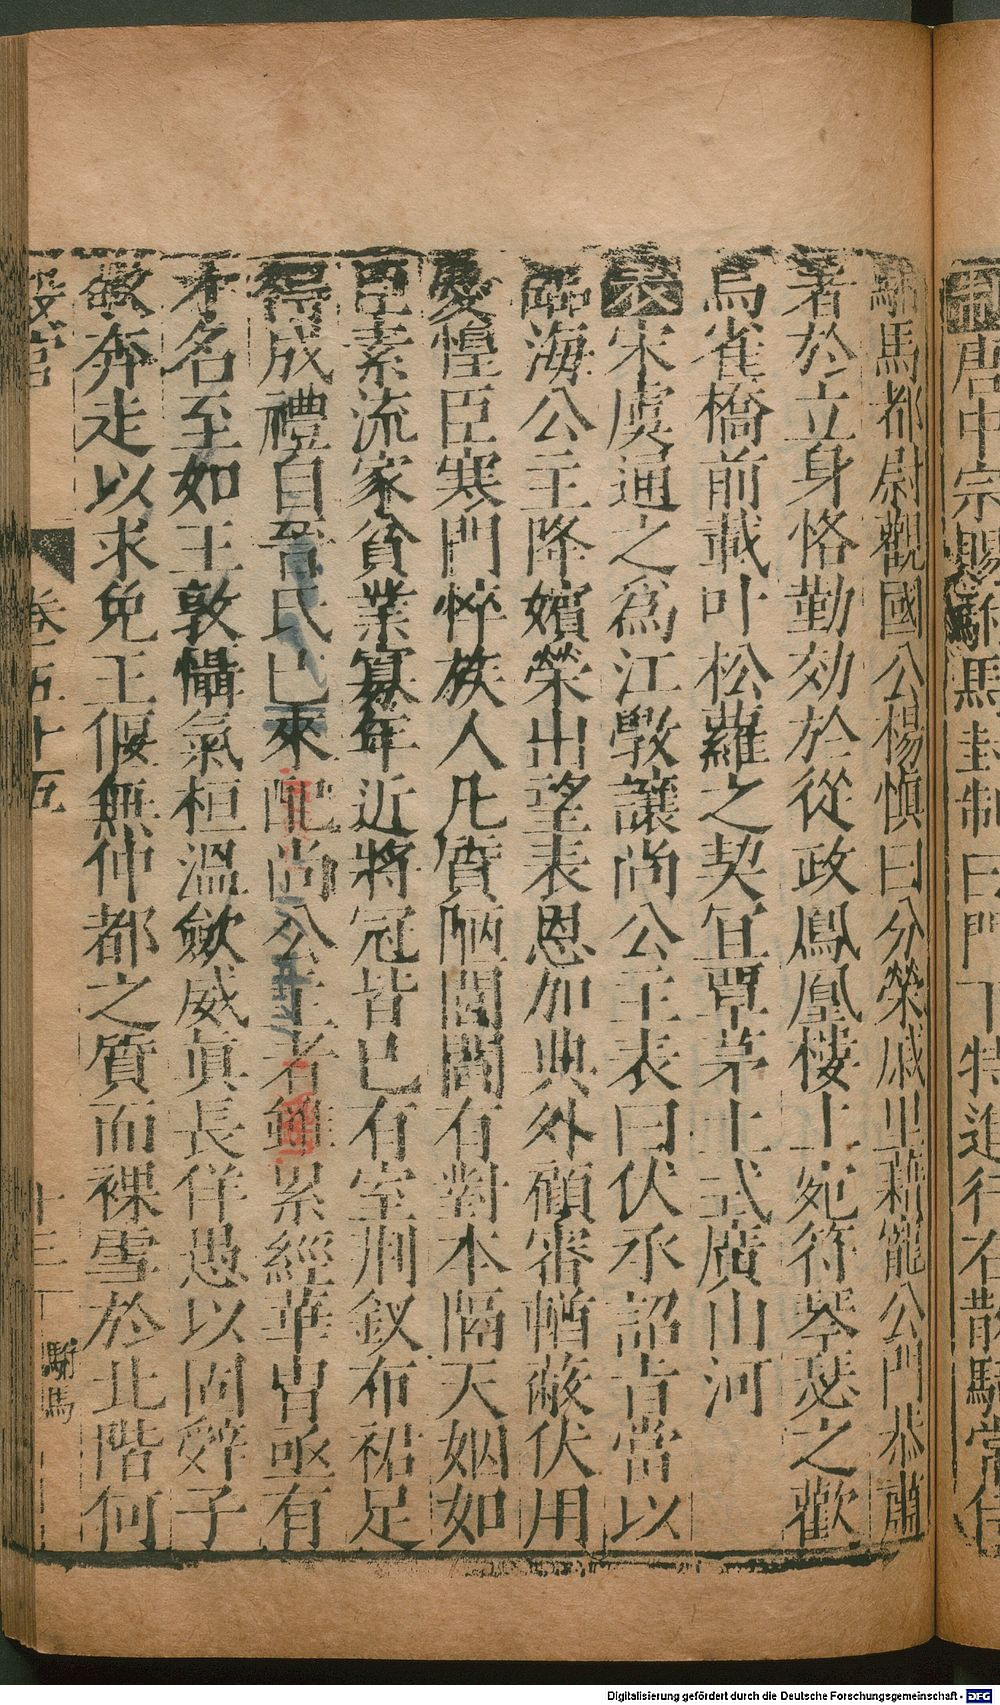 制唐中宗賜駙馬封制曰門下特進行右散騎常侍
駙馬都尉觀國公楊慎曰分榮戚里藉寵公門恭肅
著於立身恪勤効於從政鳳凰樓上宛符琴瑟之歡
烏雀橋前載叶松蘿之契宜覃茅土式廣山河
表宋虞通之爲江斆讓尚公主表曰伏承詔旨當以
臨海公主降嬪榮出望表恩加典外顧審輶蔽伏用
憂惶臣寒門悴族人凡質陋閭閻有對本隔天姻如
臣素流家貧業寡年近將冠皆已有室荆釵布裙足
得成禮自晉氏已來配尚公主者雖累經華胄亟有
才名至如王敦懾氣桓溫歛威眞長佯愚以固辭子
敬奔走以求免王偃無仲都之質而裸雪於北階何
設官
卷五十五
十三
駙馬
Digitalisierung gefördert durch die Deutsche Forschungsgemeinschaft - DFG